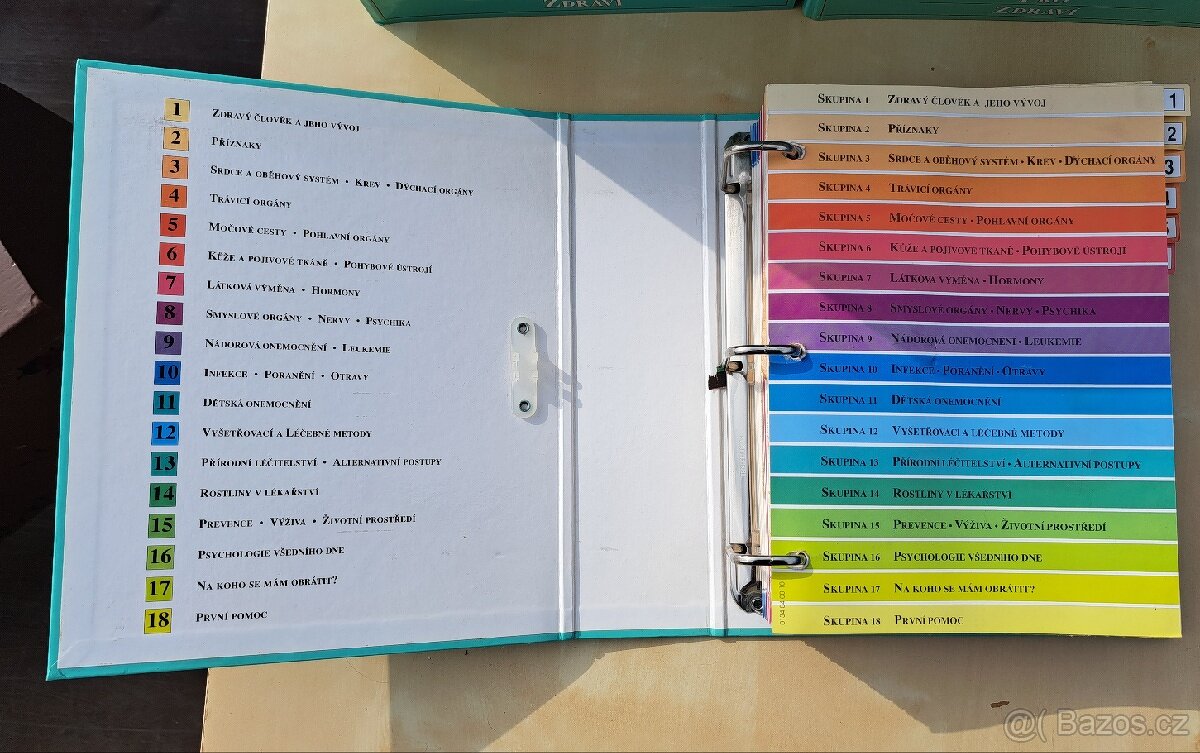 Zdraví
Zdraví
1 Zdravý člověk a jeho vývoj
2 Příznaky
3 Srdce a oběhový systém • Krev • Dýchací orgány
4 Trávicí orgány
5 Močové cesty • Pohlavní orgány
6 Kůže a pojivové tkáně • Pohybové ústrojí
7 Látková výměna • Hormony
8 Smyslové orgány • Nervy • Psychika
9 Nádorová onemocnění • Leukemie
10 Infekce • Poranění • Otravy
11 Dětská onemocnění
12 Vyšetřovací a léčebné metody
13 Přírodní léčitelství • Alternativní postupy
14 Rostliny v lékařství
15 Prevence • Výživa • Životní prostředí
16 Psychologie všedního dne
17 Na koho se mám obrátit?
18 První pomoc
Skupina 1 Zdravý člověk a jeho vývoj
Skupina 2 Příznaky
Skupina 3 Srdce a oběhový systém • Krev • Dýchací orgány
Skupina 4 Trávicí orgány
Skupina 5 Močové cesty • Pohlavní orgány
Skupina 6 Kůže a pojivové tkáně • Pohybové ústrojí
Skupina 7 Látková výměna • Hormony
Skupina 8 Smyslové orgány • Nervy • Psychika
Skupina 9 Nádorová onemocnění • Leukemie
Skupina 10 Infekce • Poranění • Otravy
Skupina 11 Dětská onemocnění
Skupina 12 Vyšetřovací a léčebné metody
Skupina 13 Přírodní léčitelství • Alternativní postupy
Skupina 14 Rostliny v lékařství
Skupina 15 Prevence • Výživa • Životní prostředí
Skupina 16 Psychologie všedního dne
Skupina 17 Na koho se mám obrátit?
Skupina 18 První pomoc
1
2
3
4
@( Bazos.cz